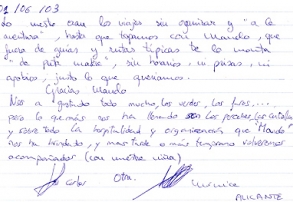 01/06/103
Lo nuestro eran los viajes sin organizar y "a la
aventura", hasta que topamos con Mando, que
fuera de guías y rutas típicas te lo monta
"de puta madre", sin horarios, ni prisas, ni
agobios, justo lo que queríamos.
Gracias Mando
Nos a gustado todo mucho, los verdes, los
pero lo que más nos ha llenado los
y sobre todo la hospitalidad y organización que "Mando"
nos ha brindado, y más tarde o más temprano volveremos
acompañados (con nuestra niña)
Carlos
ALICANTE